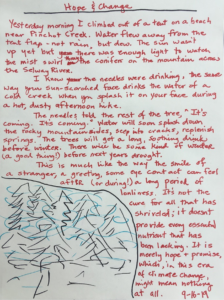 Hope & Change
Yesterday morning I climbed out of a tent on a beach
near Pinchot Creek. Water flew away from the
tent flap - not rain, but dew. The sun wasn't
up yet but there was enough light to watch
the mist swirl the conifer on the mountain across
the Selway River.
I knew the needles were drinking, the same
way you sun-scorched face drinks the water of a
cold creek when you splash it on your face during
a hot, dusty afternoon hike.
The needles told the rest of the tree, "It's
coming. It's coming." Water will soon splash down
the rocky mountainsides, seep into cracks, replenish
springs. The trees will get a long, soothing drink
before winter. There will be some kind of windfall
(a good thing!) before next year's drought.
This is much like the way the smile of
a stranger, a greeting, some eye contact can feel
after (or during) a long period of
lonliness. It's not the
cure for all that has
shriveled; it doesn't
provide every essential
nutrient that has
been lacking. It is
merely hope & promise,
which, in this era
of climate change,
might mean nothing
at all. 9-16-19